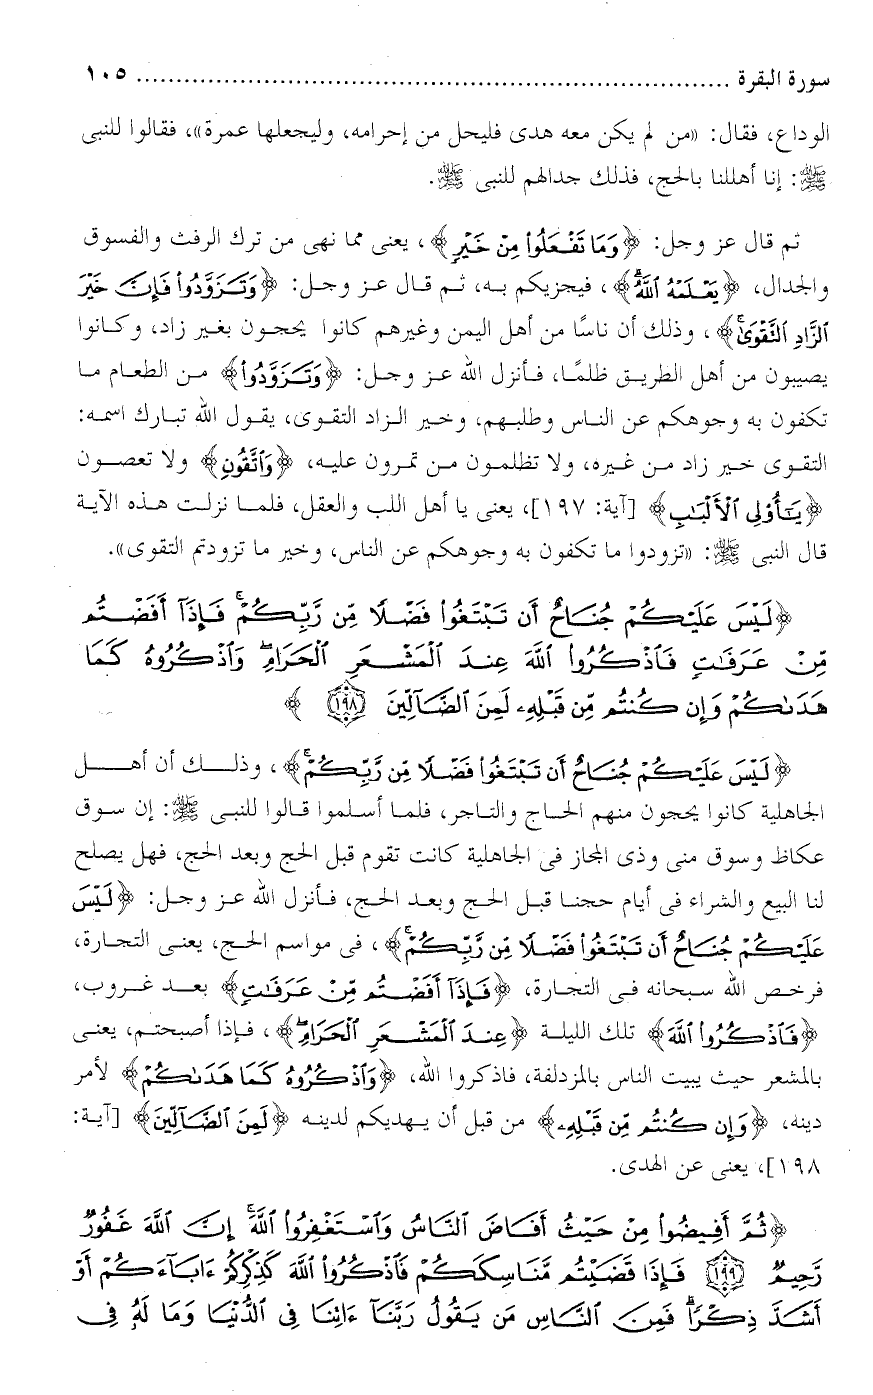 سورة البقرة ........................................................................... ١٠٥
الوداع، فقال: «من لم يكن معه هدى فليحل من إحرامه، وليجعلها عمرة»، فقالوا للنبى
ﷺ: إنا أهللنا بالحج، فذلك جدالهم للنبى ﷺ.
ثم قال عز وجل: ﴿وَمَا تَفْعَلُوا۟ مِنْ خَيْرٍ﴾، يعنى مما نهى من ترك الرفث والفسوق
والجدال، ﴿يَعْلَمْهُ ٱللَّهُ ۗ﴾، فيجزيكم به، ثم قال عز وجل: ﴿وَتَزَوَّدُوا۟ فَإِنَّ خَيْرَ
ٱلزَّادِ ٱلتَّقْوَىٰ ۚ﴾، وذلك أن ناسًا من أهل اليمن وغيرهم كانوا يحجون بغير زاد، وكانوا
يصيبون من أهل الطريق ظلمًا، فأنزل الله عز وجل: ﴿وَتَزَوَّدُوا۟﴾ من الطعام ما
تكفون به وجوهكم عن الناس وطلبهم، وخير الزاد التقوى، يقول الله تبارك اسمه:
التقوى خير زاد من غيره، ولا تظلمون من تمرون عليه، ﴿وَٱتَّقُونِ﴾ ولا تعصون
﴿يَـٰٓأُو۟لِى ٱلْأَلْبَـٰبِ﴾ [آية: ١٩٧]، يعنى يا أهل اللب والعقل، فلما نزلت هذه الآية
قال النبى ﷺ: «تزودوا ما تكفون به وجوهكم عن الناس، وخير ما تزودتم التقوى».
﴿لَيْسَ عَلَيْكُمْ جُنَاحٌ أَن تَبْتَغُوا۟ فَضْلًا مِّن رَّبِّكُمْ ۚ فَإِذَآ أَفَضْتُم
مِّنْ عَرَفَـٰتٍ فَٱذْكُرُوا۟ ٱللَّهَ عِندَ ٱلْمَشْعَرِ ٱلْحَرَامِ ۖ وَٱذْكُرُوهُ كَمَا
هَدَىٰكُمْ وَإِن كُنتُم مِّن قَبْلِهِۦ لَمِنَ ٱلضَّآلِّينَ ١٩٨ ﴾
﴿لَيْسَ عَلَيْكُمْ جُنَاحٌ أَن تَبْتَغُوا۟ فَضْلًا مِّن رَّبِّكُمْ ۚ﴾، وذلك أن أهل
الجاهلية كانوا يحجون منهم الحاج والتاجر، فلما أسلموا قالوا للنبى ﷺ: إن سوق
عكاظ وسوق منى وذى المجاز فى الجاهلية كانت تقوم قبل الحج وبعد الحج، فهل يصلح
لنا البيع والشراء فى أيام حجنا قبل الحج وبعد الحج، فأنزل الله عز وجل: ﴿لَيْسَ
عَلَيْكُمْ جُنَاحٌ أَن تَبْتَغُوا۟ فَضْلًا مِّن رَّبِّكُمْ ۚ﴾، فى مواسم الحج، يعنى التجارة،
فرخص الله سبحانه فى التجارة، ﴿فَإِذَآ أَفَضْتُم مِّنْ عَرَفَـٰتٍ﴾ بعد غروب،
﴿فَٱذْكُرُوا۟ ٱللَّهَ﴾ تلك الليلة ﴿عِندَ ٱلْمَشْعَرِ ٱلْحَرَامِ ۖ﴾، فإذا أصبحتم، يعنى
بالمشعر حيث يبيت الناس بالمزدلفة، فاذكروا الله، ﴿وَٱذْكُرُوهُ كَمَا هَدَىٰكُمْ﴾ لأمر
دينه، ﴿وَإِن كُنتُم مِّن قَبْلِهِۦ﴾ من قبل أن يهديكم لدينه ﴿لَمِنَ ٱلضَّآلِّينَ﴾ [آية:
١٩٨]، يعنى عن الهدى.
﴿ثُمَّ أَفِيضُوا۟ مِنْ حَيْثُ أَفَاضَ ٱلنَّاسُ وَٱسْتَغْفِرُوا۟ ٱللَّهَ ۚ إِنَّ ٱللَّهَ غَفُورٌ
رَّحِيمٌ ١٩٩ فَإِذَا قَضَيْتُم مَّنَـٰسِكَكُمْ فَٱذْكُرُوا۟ ٱللَّهَ كَذِكْرِكُمْ ءَابَآءَكُمْ أَوْ
أَشَدَّ ذِكْرًا ۗ فَمِنَ ٱلنَّاسِ مَن يَقُولُ رَبَّنَآ ءَاتِنَا فِى ٱلدُّنْيَا وَمَا لَهُۥ فِى